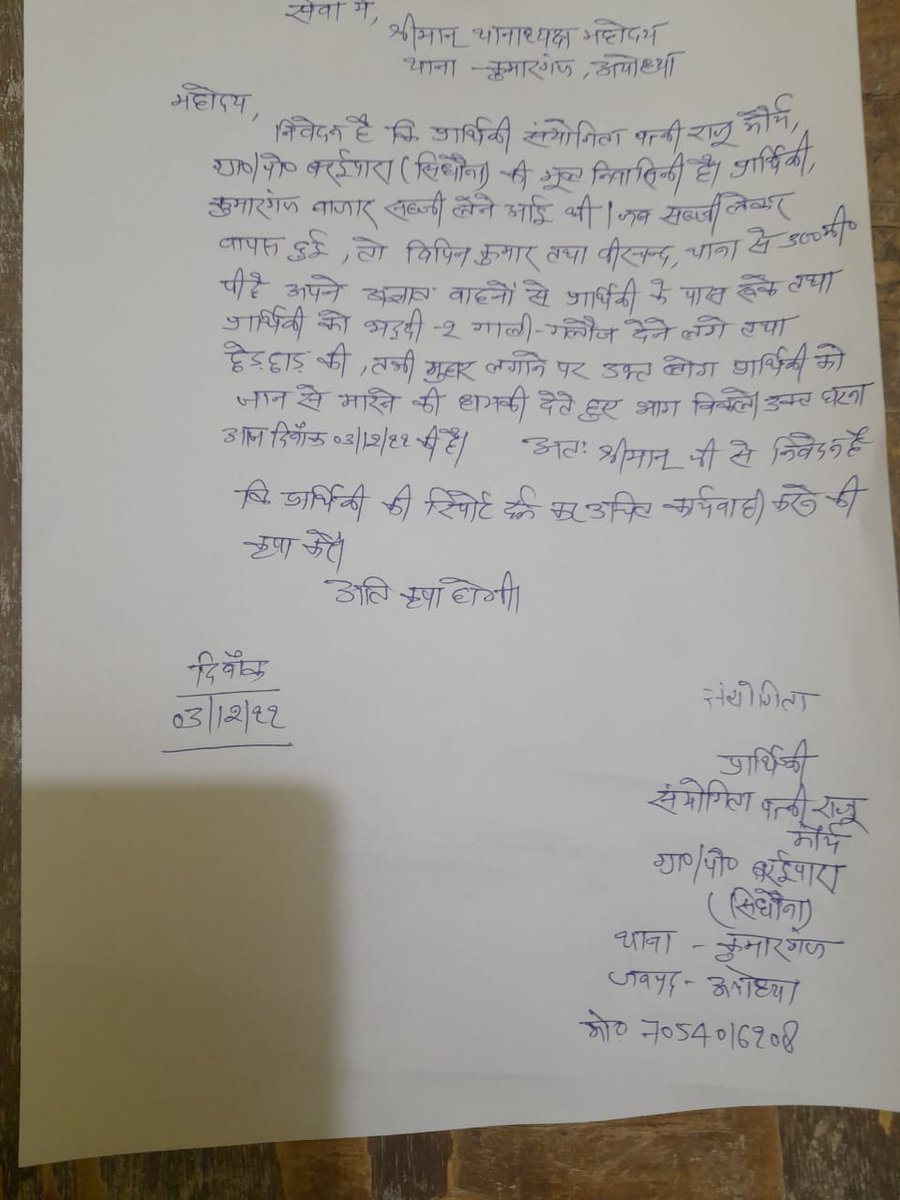 सेवा में,
श्रीमान् थानाध्यक्ष महोदय
थाना - कुमारगंज, अयोध्या
महोदय,
निवेदन है कि प्रार्थिनी संयोगिता पत्नी राजू मौर्य,
ग्रा०/पो० बरईपारा (सिधौना) की मूल निवासिनी है। प्रार्थिनी,
कुमारगंज बाजार सब्जी लेने आई थी। जब सब्जी लेकर
वापस हुई, तो विपिन कुमार तथा वीरचन्द्र, थाना से 300मी०
पीछे अपने अज्ञात वाहनों से प्रार्थिनी के पास रूके तथा
प्रार्थिनी को भद्दी-२ गाली-गलौज देने लगे तथा
छेड़छाड़ की, तभी गुहार लगाने पर उक्त लोग प्रार्थिनी को
जान से मारने की धमकी देते हुए भाग निकले। उक्त घटना
आज दिनाँक 03/12/22 की है। अतः श्रीमान् जी से निवेदन है
कि प्रार्थिनी की रिपोर्ट दर्ज कर उचित कार्यवाही करने की
कृपा करें।
अति कृपा होगी।
दिनाँक
03/12/22
संयोगिता
प्रार्थिनी
संयोगिता पत्नी राजू
मौर्य
ग्रा०/पो० बरईपारा
(सिधौना)
थाना - कुमारगंज
जनपद - अयोध्या
मो०